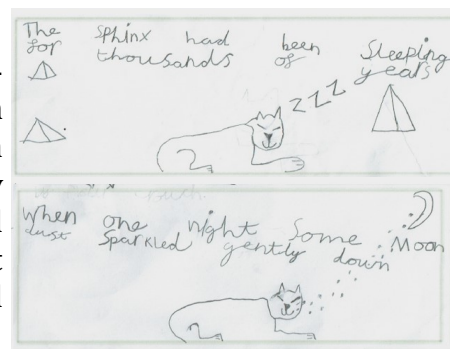 The Sphinx had been Sleeping
for thousands of years
ZZZ
When one night Some Moon
dust Sparkled gently down